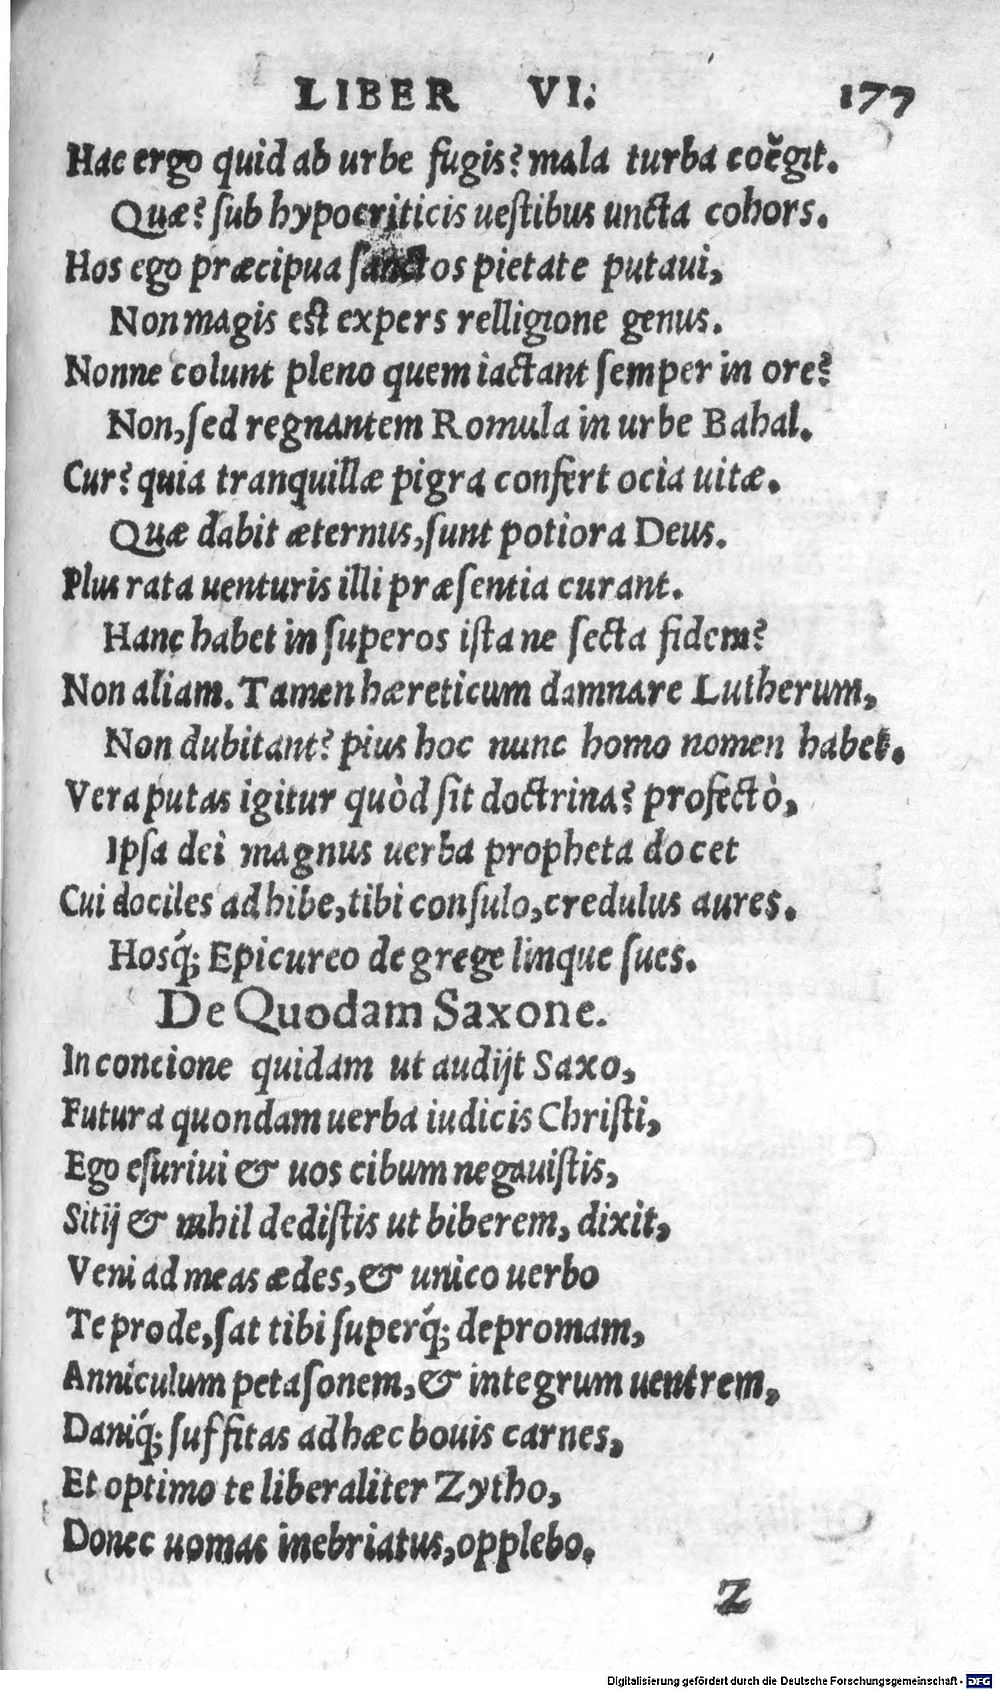 LIBER VI. 177
Hac ergo quid ab urbe fugis? mala turba coëgit.
Quæ? sub hypocriticis uestibus uncta cohors.
Hos ego præcipua sanctos pietate putaui,
Non magis est expers relligione genus.
Nonne colunt pleno quem iactant semper in ore?
Non, sed regnantem Romula in urbe Bahal.
Cur? quia tranquillæ pigra confert ocia uitæ.
Quæ dabit æternus, sunt potiora Deus.
Plus rata uenturis illi præsentia curant.
Hanc habet in superos ista ne secta fidem?
Non aliam. Tamen hæreticum damnare Lutherum,
Non dubitant? pius hoc nunc homo nomen habet.
Vera putas igitur quòd sit doctrina? profectò,
Ipsa dei magnus uerba propheta docet
Cui dociles adhibe, tibi consulo, credulus aures.
Hosq́; Epicureo de grege linque sues.
De Quodam Saxone.
In concione quidam ut audijt Saxo,
Futura quondam uerba iudicis Christi,
Ego esuriui & uos cibum negauistis,
Sitij & nihil dedistis ut biberem, dixit,
Veni ad meas ædes, & unico uerbo
Te prode, sat tibi superq́; depromam,
Anniculum petasonem, & integrum uentrem,
Daniq́; suffitas ad hæc bouis carnes,
Et optimo te liberaliter Zytho,
Donec uomas inebriatus, opplebo.
Z
Digitalisierung gefördert durch die Deutsche Forschungsgemeinschaft - DFG